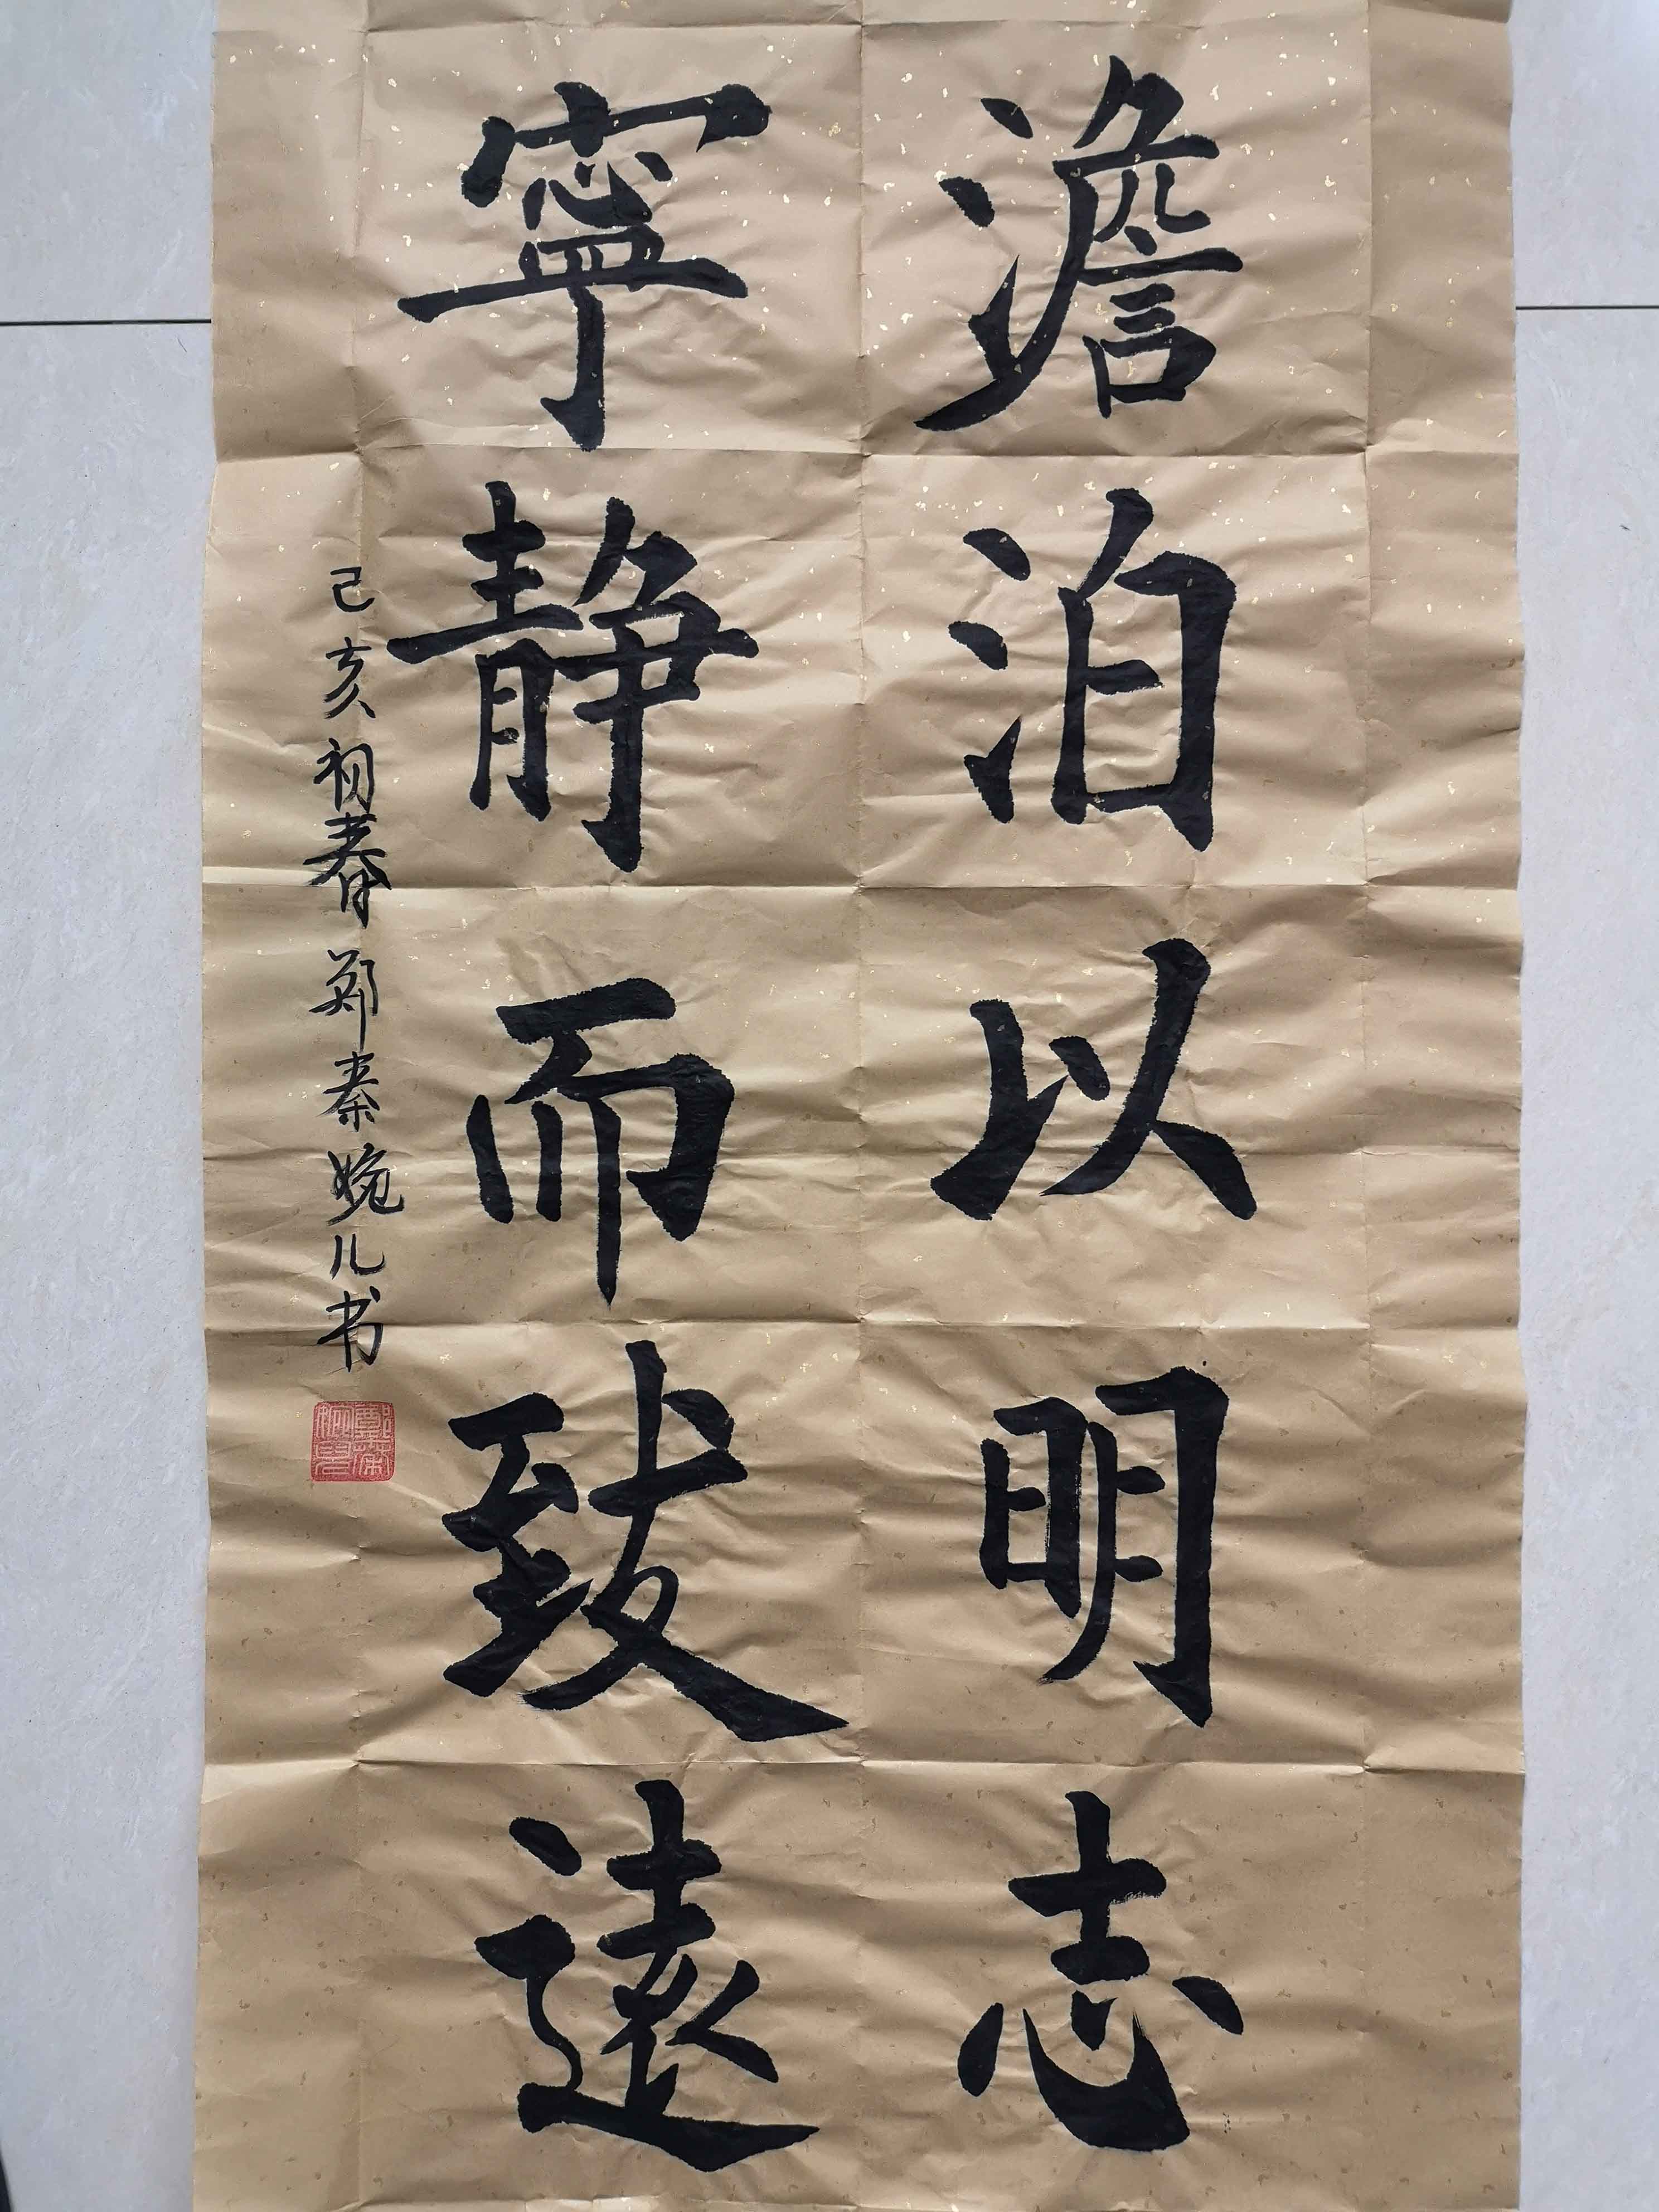 澹泊以明志
寧静而致遠
己亥初春鄭秦婉儿书